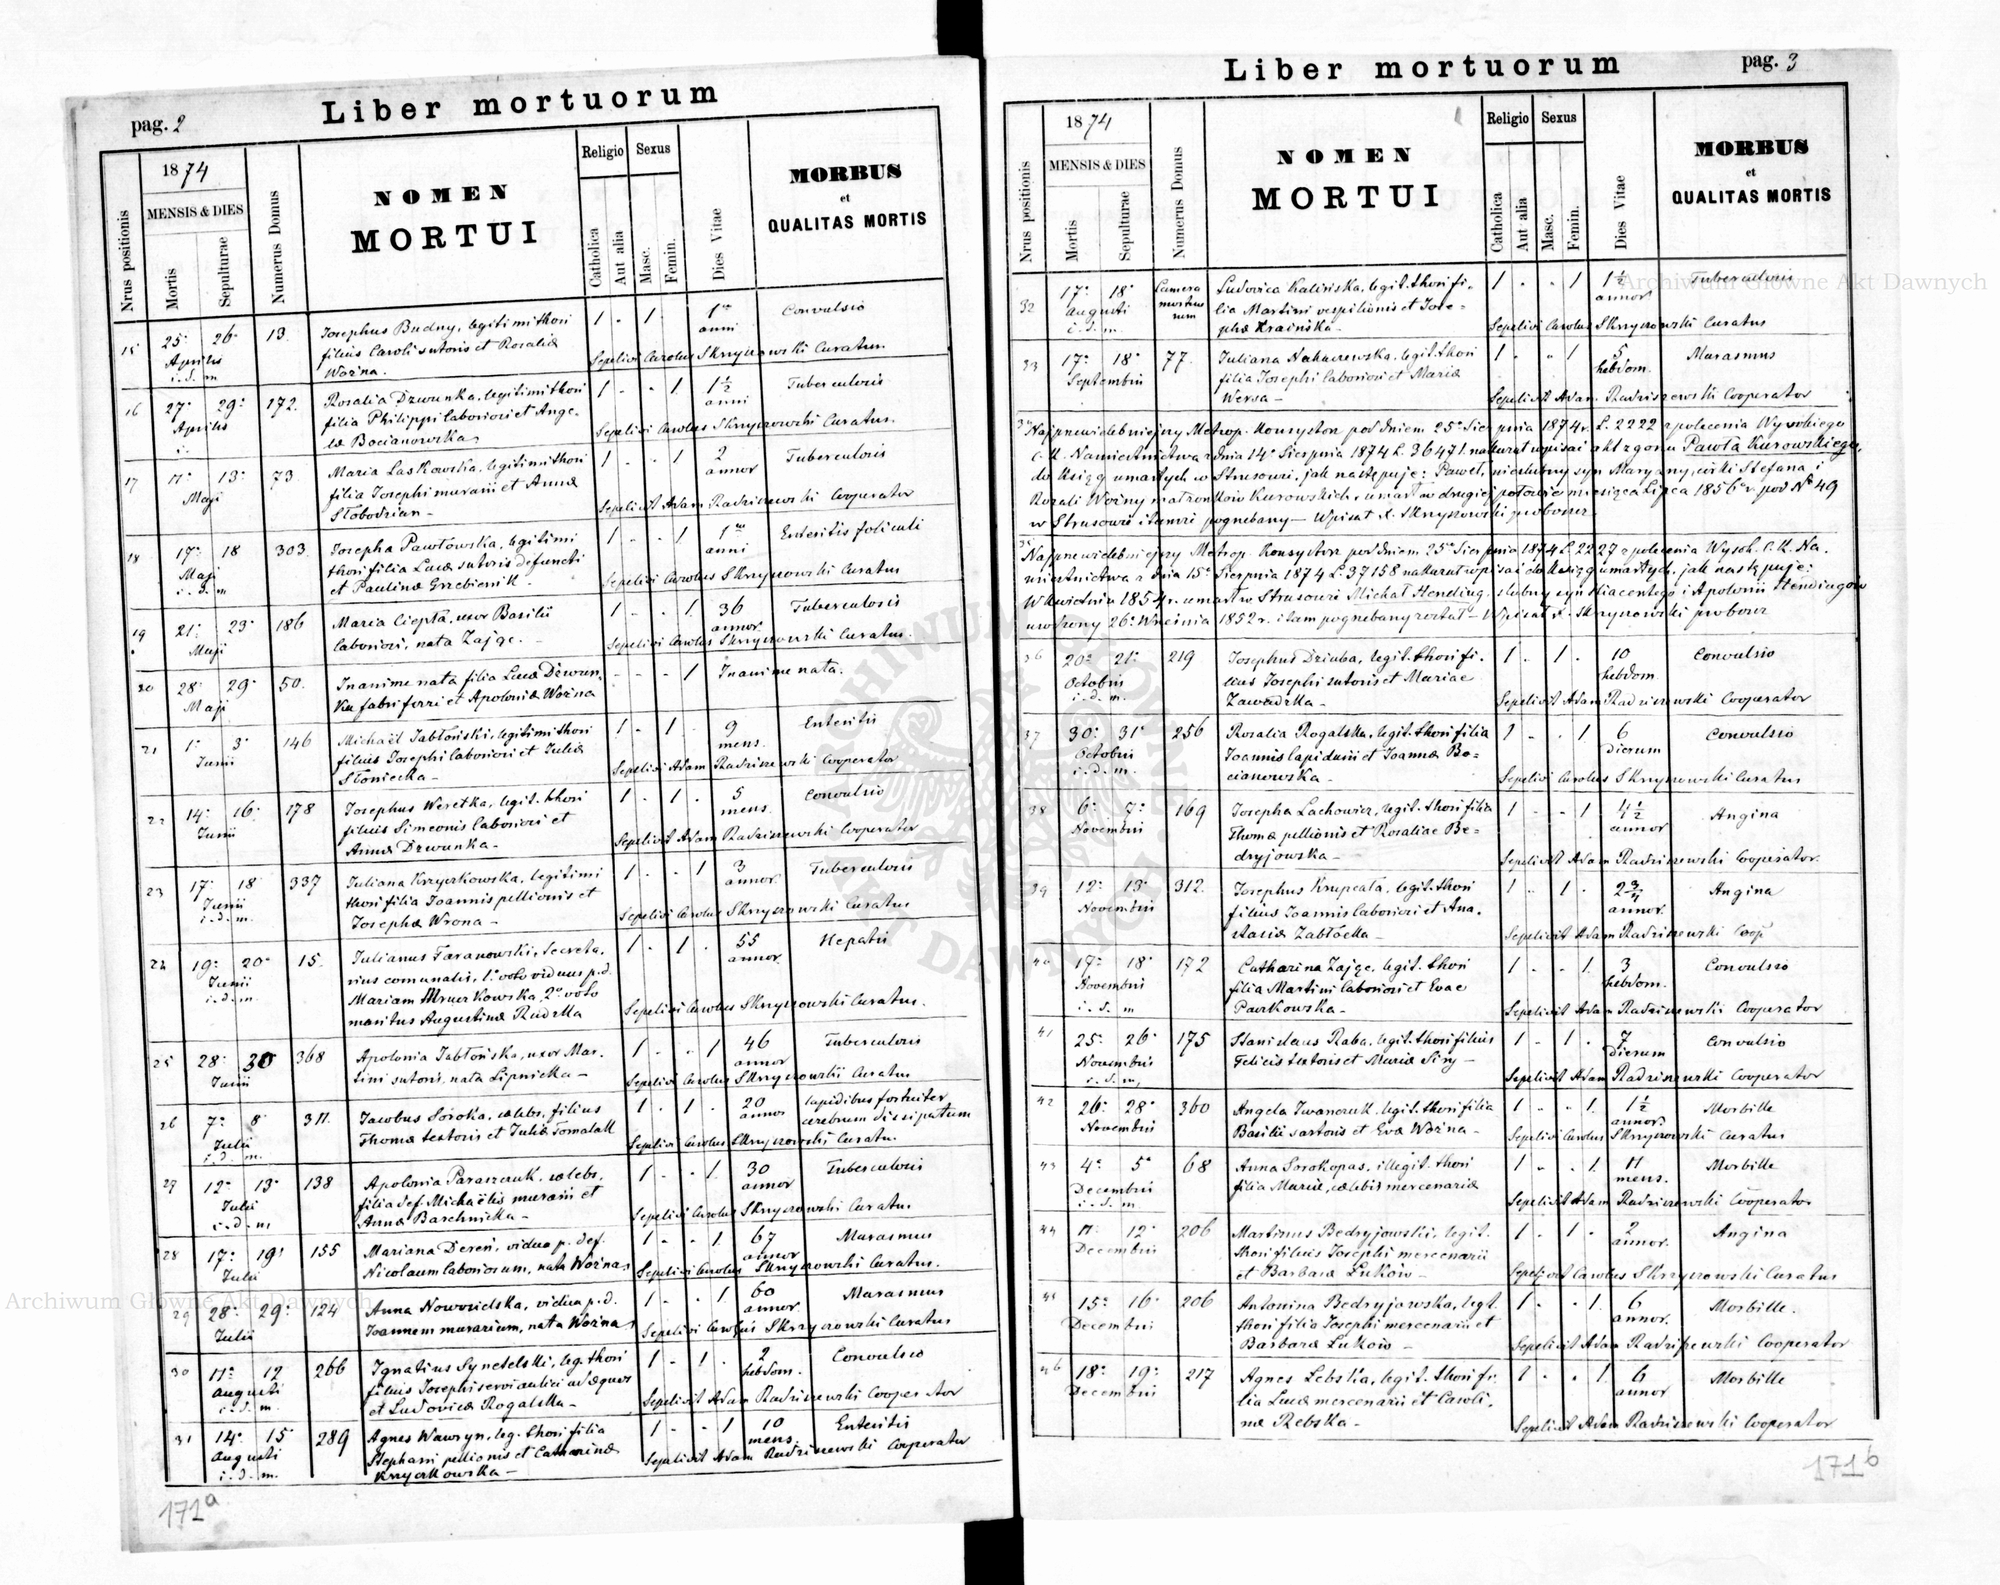 pag. 2
Liber mortuorum
Nrus positionis
1874
MENSIS & DIES
Mortis
Sepulturae
Numerus Domus
NOMEN
MORTUI
Religio
Catholica
Aut alia
Sexus
Masc.
Femin.
Dies Vitae
MORBUS
et
QUALITAS MORTIS
15 25a 26a 13. Josephus Budny, legitimi thori 1 - 1 1us Convulsio
Aprilis filius Caroli sutoris et Rosaliæ anni
i. d. m Woźna. Sepelivi Carolus Skrzyszowski Curatus.
16 27a 29a 172. Rosalia Dzwunka, legitimi thori 1 - - 1 1½ Tuberculosis
Aprilis filia Philippi laboriosi et Ange- anni
læ Bocianowska Sepelivi Carolus Skrzyszowski Curatus.
17 11a 13a 73 Maria Laskowska, legitimi thori 1 - - 1 2 Tuberculosis
Maji filia Josephi murarii et Annæ annor
Słobodzian - Sepelivit Adam Radziszewski Cooperator
18 17a 18 303. Josepha Pawłowska, legitimi 1 - - 1 1us Enteritis foliculi
Maji thori filia Lucæ sutoris defuncti anni
i. d. m et Paulinæ Grzebienik - Sepelivi Carolus Skrzyszowski Curatus
19 21a 23a 186 Maria Ciepła, uxor Basilii 1 - - 1 36 Tuberculosis
Maji laboriosi, nata Zając. - annor. Sepelivi Carolus Skrzyszowski Curatus.
20 28a 29a 50. Inanime nata filia Lucæ Dzwun- - - - 1 Inanime nata.
Maji ka fabri ferri et Apoloniæ Woźna
21 1a 3a 146 Michaël Jabłoński, legitimi thori 1 - 1 - 9 Enteritis
Junii filius Josephi laboriosi et Juliæ mens.
Słoniecka - Sepelivi Adam Radziszewski Cooperator
22 14a 16a 178 Josephus Weretka, legit. thori 1 - 1 - 5 Convulsio
Junii filius Simeonis laboriosi et mens.
Annæ Dzwunka - Sepelivit Adam Radziszewski Cooperator
23 17a 18 337 Juliana Krzyczkowska, legitimi 1 - - 1 3 Tuberculosis
Junii thori filia Joannis pellionis et annor.
i. d. m. Josephæ Wrona - Sepelivi Carolus Skrzyszowski Curatus
24 19a 20a 15. Julianus Taranowski, Secreta- 1 - 1 - 55 Hepatis
Junii rius comunalis, 1o voto viduus p. d. annor
i. d. m. Mariam
maritus Augustinæ Rudzka Sepelivi Carolus Skrzyszowski Curatus.
25 28a 30 368 Apolonia Jabłońska, uxor Mar- 1 - - 1 46 Tuberculosis
Junii tini sutoris, nata Lipnicka - annor Sepelivi Carolus Skrzyszowski Curatus
26 7a 8a 311. Jacobus Soroka, cælebs, filius 1 - 1 - 20 lapidibus fortuiter
Julii Thomæ textoris et Juliæ Tomalak annor cerebrum dissipatum
i. d. m. Sepelivi Carolus Skrzyszowski Curatus.
27 12a 13a 138 Apolonia Paraszczuk, cælebs, 1 - - 1. 30 Tuberculosis
Julii filia def. Michaëlis murarii et annor
i. d. m Annæ Barchnicka - Sepelivi Carolus Skrzyszowski Curatus
28 17a 19a 155 Mariana Dereń, vidua p. def. 1 - - 1 67 Marasmus
Julii Nicolaum laboriosum, nata Woźna annor Sepelivi Carolus Skrzyszowski Curatus.
29 28a 29a 124 Anna Nowosielska, vidua p. d. 1 - - 1 60 Marasmus
Julii Joannem murarium, nata Woźna annor. Sepelivi Carolus Skrzyszowski Curatus
30 11a 12 266 Ignatius Synetelski, leg. thori 1 - 1 - 2 Convulsio
Augusti filius Josephi servi aulici ad equos hebdom.
i. d. m. et Ludovicæ Rogalska - Sepelivit Adam Radziszewski Cooperator
31 14a 15a 289 Agnes Wawryn, leg. thori filia 1 - - 1 10 Enteritis
Augusti Stephani pellionis et Catharinæ mens.
i. d. m. Krzyczkowska - Sepelivit Adam Radziszewski Cooperator
171a
Liber mortuorum
pag. 3
Nrus positionis
1874
MENSIS & DIES
Mortis
Sepulturae
Numerus Domus
NOMEN
MORTUI
Religio
Catholica
Aut alia
Sexus
Masc.
Femin.
Dies Vitae
MORBUS
et
QUALITAS MORTIS
32 17a 18a Camera Ludovica Kalińska, legit. thori fi- 1 - - 1 1½ Tuberculosis
Augusti mortuo lia Martini vespilionis et Jose- annor
i. d. m. rum phæ Krainska - Sepelivi Carolus Skrzyszowski Curatus
33 17a 18a 77. Juliana Nakaczewska, legit. thori 1 - - 1 5 Marasmus
Septembris filia Josephi laboriosi et Mariæ hebdom.
Wersa - Sepelivit Adam Radziszewski Cooperator
34 Najprzewielebniejszy Metrop. Konsystorz pod dniem 25o Sierpnia 1874 r. L. 2222 z polecenia Wysokiego
C. K. Namiestnictwa z dnia 14o Sierpnia 1874 L. 36471. nakazał wpisać akt zgonu Pawła Kurowskiego,
do księgi umarłych w Strusowie, jak następuje: Paweł, nieślubny syn Maryanny, córki Stefana i
Rozali Woźny małżonków Kurowskich, umarł w drugiej połowie miesiąca Lipca 1856o r. pod No 49
w Strusowie i tamże pogrzebany - Wpisał X. Skrzyszowski proboszcz.
35 Najprzewielebniejszy Metrop. Konsystorz pod dniem 25o Sierpnia 1874 L. 2227 z polecenia Wysok. C. K. Na-
miestnictwa z dnia 15o Sierpnia 1874 L. 37158 nakazał wpisać do księgi umarłych, jak następuje:
W kwietniu 1854 r. umarł w Strusowie Michał Hending, ślubny syn Hiacentego i Apolonii Hendingów
urodzony 26o Września 1852 r. i tam pogrzebany został - Wpisał X. Skrzyszowski proboszcz
36 20a 21a 219 Josephus Dziuba, legit. thori fi- 1 - 1 - 10 Convulsio
Octobris lius Josephi sutoris et Mariae hebdom.
i. d. m. Zawadzka - Sepelivit Adam Radziszewski Cooperator
37 30a 31a 256 Rosalia Rogalska, legit. thori filia 1 - - 1 6 Convulsio
Octobris Joannis lapidarii et Joannæ Bo- dierum
i. d. m. cianowska - Sepelivi Carolus Skrzyszowski Curatus
38 6a 7a 169 Josepha Lachowicz, legit. thori filia 1 - - 1 4½ Angina
Novembris Thomæ pellionis et Rosaliae Be- annor
dryjowska - Sepelivit Adam Radziszewski Cooperator.
39 12a 13a 312. Josephus Krupcała, legit. thori 1 - 1 - 2¾ Angina
Novembris filius Joannis laboriosi et Ana- annor.
stasiæ Zabłocka - Sepelivit Adam Radziszewski Coop
40 17a 18a 172 Catharina Zając, legit. thori 1 - - 1. 3 Convulsio
Novembris filia Martini laboriosi et Evae hebdom.
i. d. m Pawkowska - Sepelivit Adam Radziszewski Cooperator
41 25a 26a 175 Stanislaus Raba, legit. thori filius 1 - 1 - 7 Convulsio
Novembris Felicis textoris et Mariæ Siry - dierum
i. d. m. Sepelivit Adam Radziszewski Cooperator
42 26a 28a 360 Angela Iwanczuk, legit. thori filia 1 - - 1. 1½ Morbille
Novembris Basilii sartoris et Evæ Woźna - annor. Sepelivi Carolus Skrzyszowski Curatus
43 4a 5a 68 Anna Sorokopas, illegit. thori 1 - - 1. 11 Morbille
Decembris filia Mariæ, cælebis mercenariæ mens.
i. d. m Sepelivit Adam Radziszewski Cooperator
44 11a 12a 206 Martinus Bedryjowski, legit. 1 - 1 - 2 Angina
Decembris thori filius Josephi mercenarii annor.
et Barbaræ Luków - Sepelivit Carolus Skrzyszowski Curatus
45 15a 16a 206 Antonina Bedryjowska, legt. 1 - - 1. 6 Morbille.
Decembris thori filia Josephi mercenarii et annor.
Barbaræ Luków - Sepelivit Adam Radziszewski Cooperator
46 18a 19a 217 Agnes Lebska, legit. thori fi- 1 - - 1. 6 Morbille
Decembris lia Lucæ mercenarii et Caroli- annor
næ Rebska - Sepelivit Adam Radziszewski Cooperator
171b
Archiwum Główne Akt Dawnych
Archiwum Główne Akt Dawnych
ARCHIWUM GŁÓWNE AKT DAWNYCH